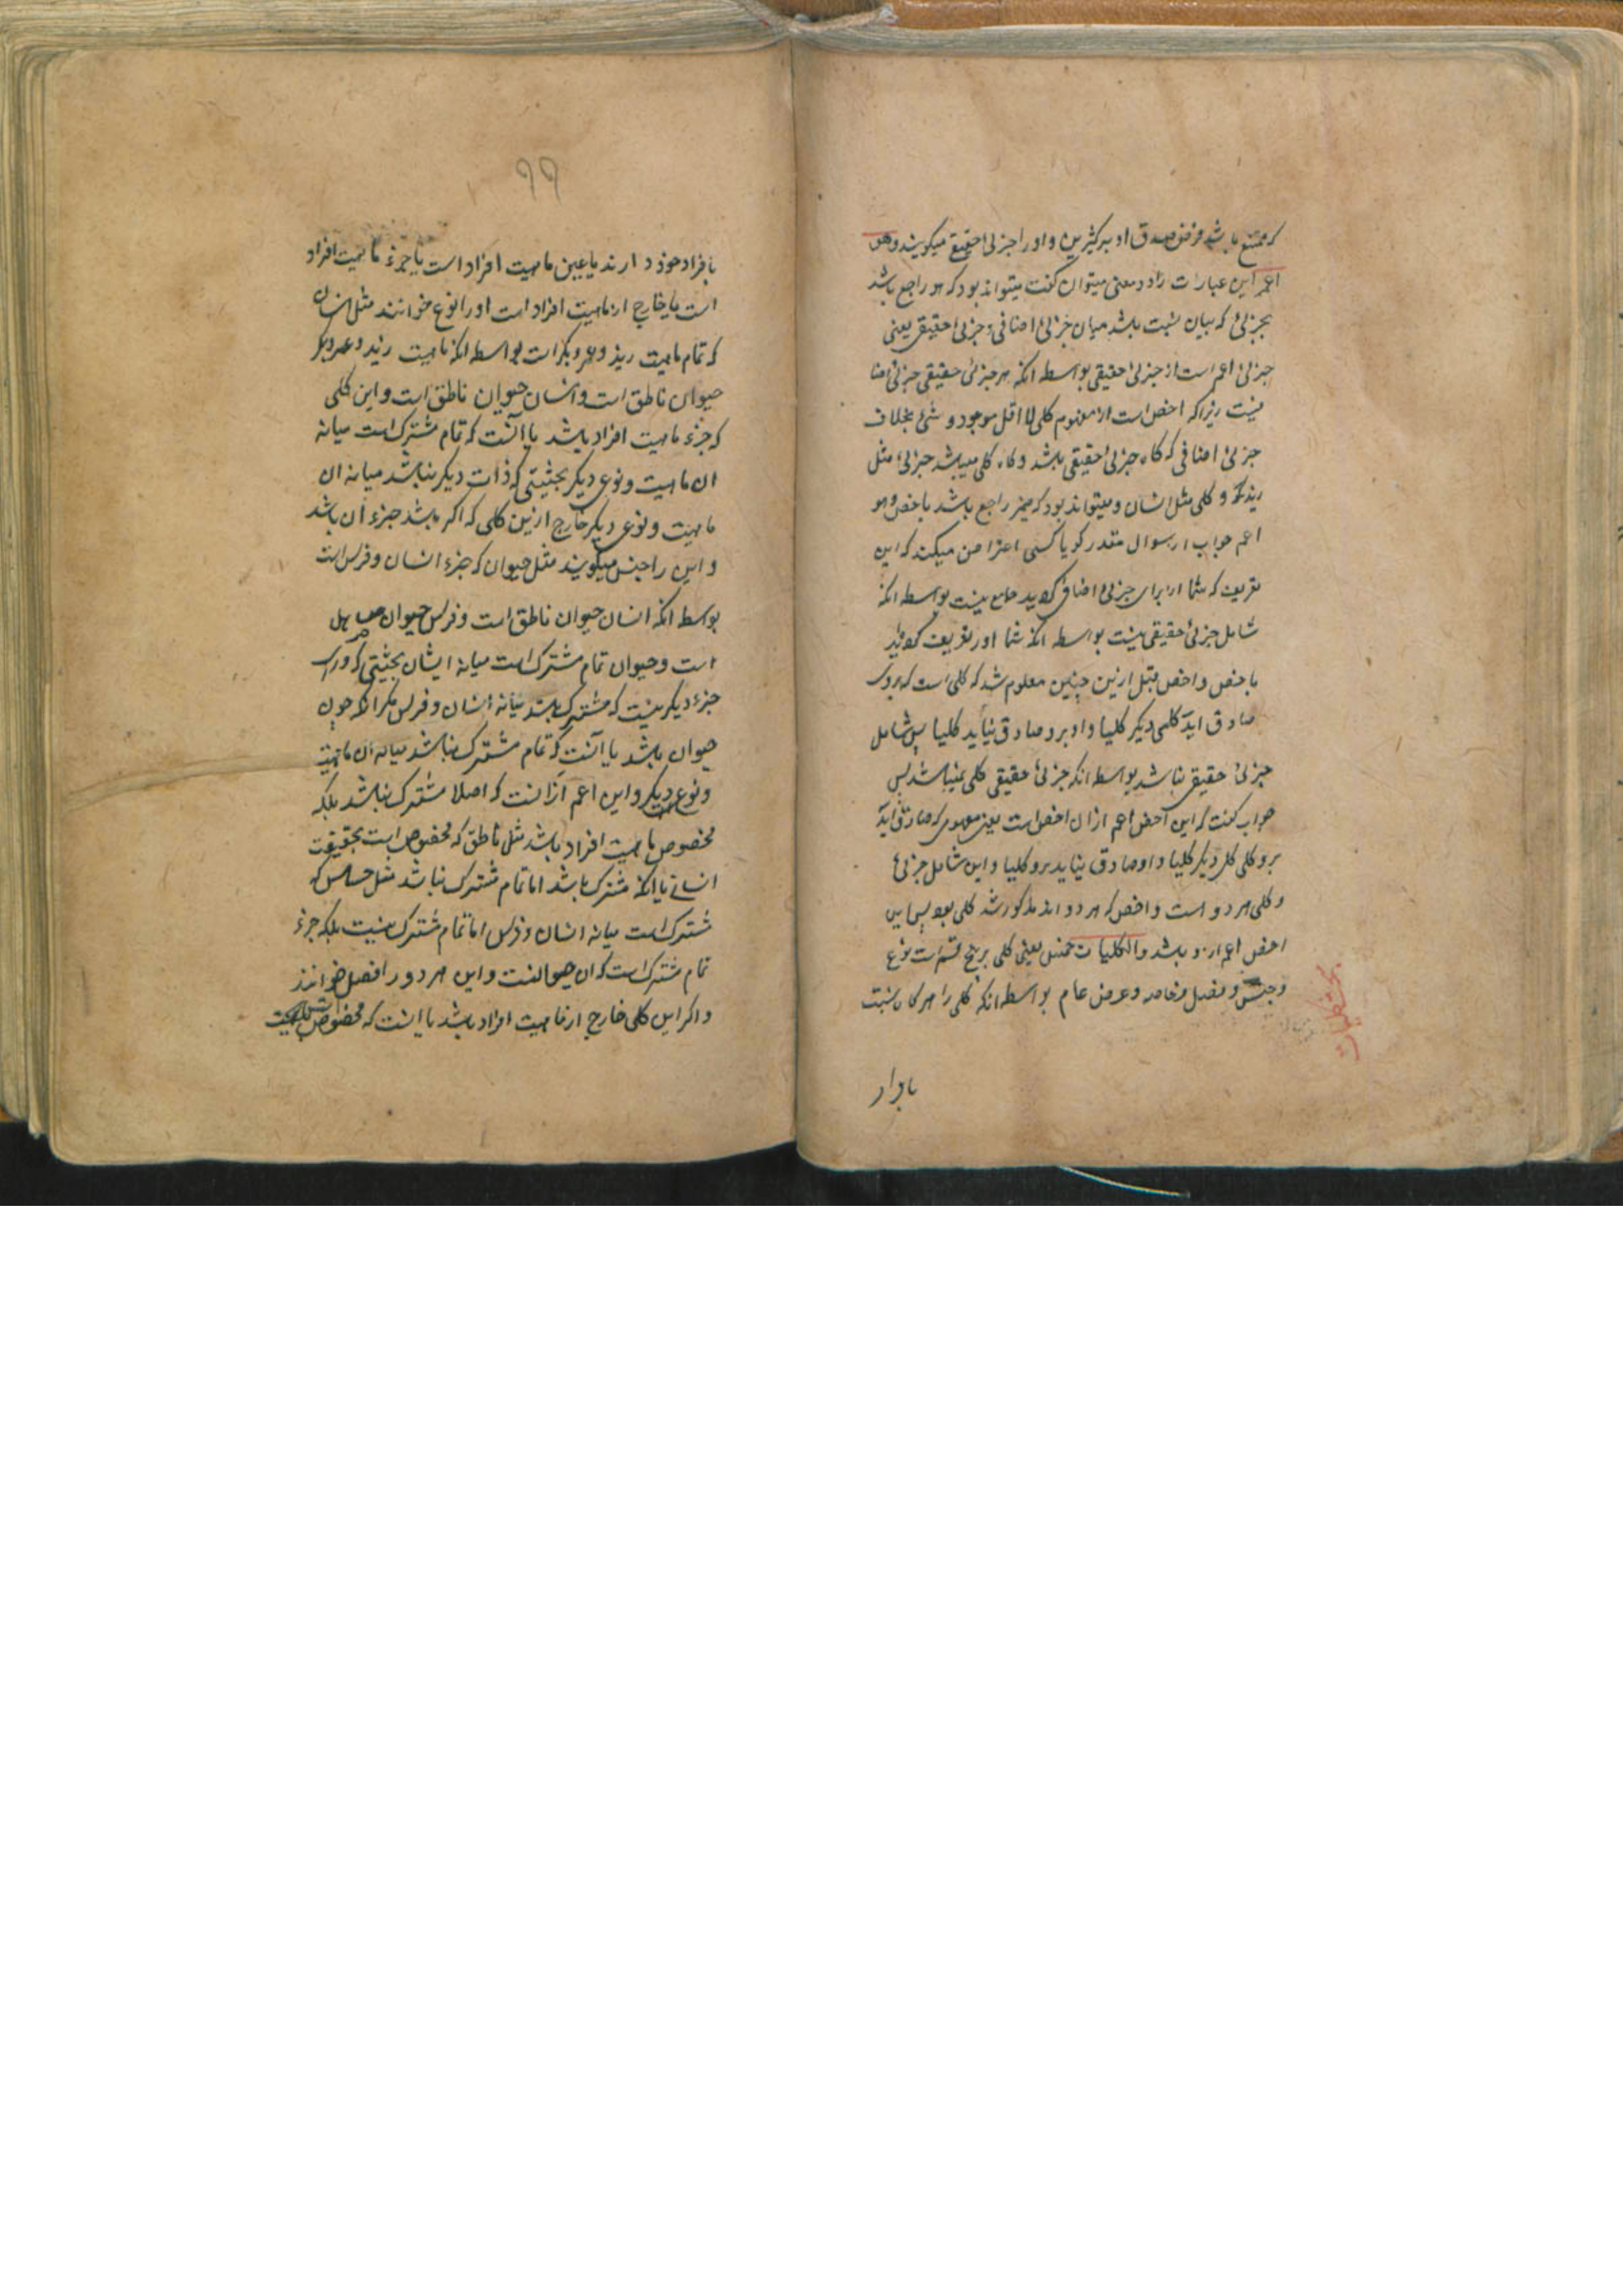 که ممتنع باشد فرض صدق او بر کثیرین و او را جزئی حقیقی میگویند و هو
اعم این عبارات را دو معنی میتوان گفت میتواند بود که هو راجع باشد
بجزئی که بیان نسبت باشد میان جزئی اضافی و جزئی حقیقی یعنی
جزئی اعم است از جزئی حقیقی بواسطه انکه هر جزئی حقیقی جزئی اضا
نیست زیرا که اخص است از مفهوم کلی لا اقل موجود و شئ بخلاف
جزئی اضافی که کاه جزئی حقیقی باشد و کاه کلی میباشد جزئی مثل
زید و کلی مثل انسان و میتواند بود که ضمیر راجع باشد باخص و هو
اعم جواب از سوال مقدر کویا کسی اعتراض میکند که این
تعریف که شما از برای جزئی اضافی کردید جامع نیست بواسطه انکه
شامل جزئی حقیقی نیست بواسطه انکه شما او را تعریف کردید
باخص و اخص قبل ازین چنین معلوم شد که کلی است که بروی
صادق اید کلی دیکر کلیا و او برو صادق نیاید کلیا پس شامل
جزئی حقیقی نباشد بواسطه انکه جزئی حقیقی کلی نمیباشد پس
جواب کفت که این اخص اعم از ان اخص است یعنی مفهومی که صادق اید
برو کلی دیکر کلیا و او صادق نیاید برو کلیا و این شامل جزئی
و کلی هر دو است و اخص که مذکور شد کلی بود پس این
اخص اعم ازو باشد والکلیات خمس یعنی کلی بر پنج قسم است نوع
و جنس و فصل و خاصه و عرض عام بواسطه انکه کلی را هرکاه نسبت
بافراد
۹۹
بافراد خود دارند یا عین ماهیت افراد است یا جزء ماهیت افراد
است یا خارج از ماهیت افراد است او را نوع خوانند مثل انسان
که تمام ماهیت زید و عمرو بکر است بواسطه انکه ماهیت زید و عمرو بکر
حیوان ناطق است و انسان حیوان ناطق است و این کلی
که جزء ماهیت افراد باشد یا انست که تمام مشترک است میانه
ان ماهیت و نوعی دیکر بحیثیتی که ذات دیکر نباشد میانه ان
ماهیت و نوعی دیکر خارج ازین کلی که اکر باشد جزء ان باشد
و این را جنس میکویند مثل حیوان که جزء انسان و فرس است
بواسطه انکه انسان حیوان ناطق است و فرس حیوان صاهل
است و حیوان تمام مشترک است میانه ایشان بحیثیتی که ورای
جزء دیکر نیست که مشترک باشد میانه انسان و فرس مکر انکه جزء
حیوان باشد یا انست که تمام مشترک نباشد میانه ان ماهیت
و نوع دیکر و این اعم از انست که اصلا مشترک نباشد بلکه
مخصوص ماهیت افراد باشد مثل ناطق که مخصوص است بحقیقت
انسان یا انکه مشترک باشد اما تمام مشترک نباشد مثل حساس که
مشترک است میانه انسان و فرس اما تمام مشترک نیست بلکه جزء
تمام مشترک است که ان حیوانست و این هر دو را فصل خوانند
و اکر این کلی خارج از ماهیت افراد باشد یا انست که مخصوص